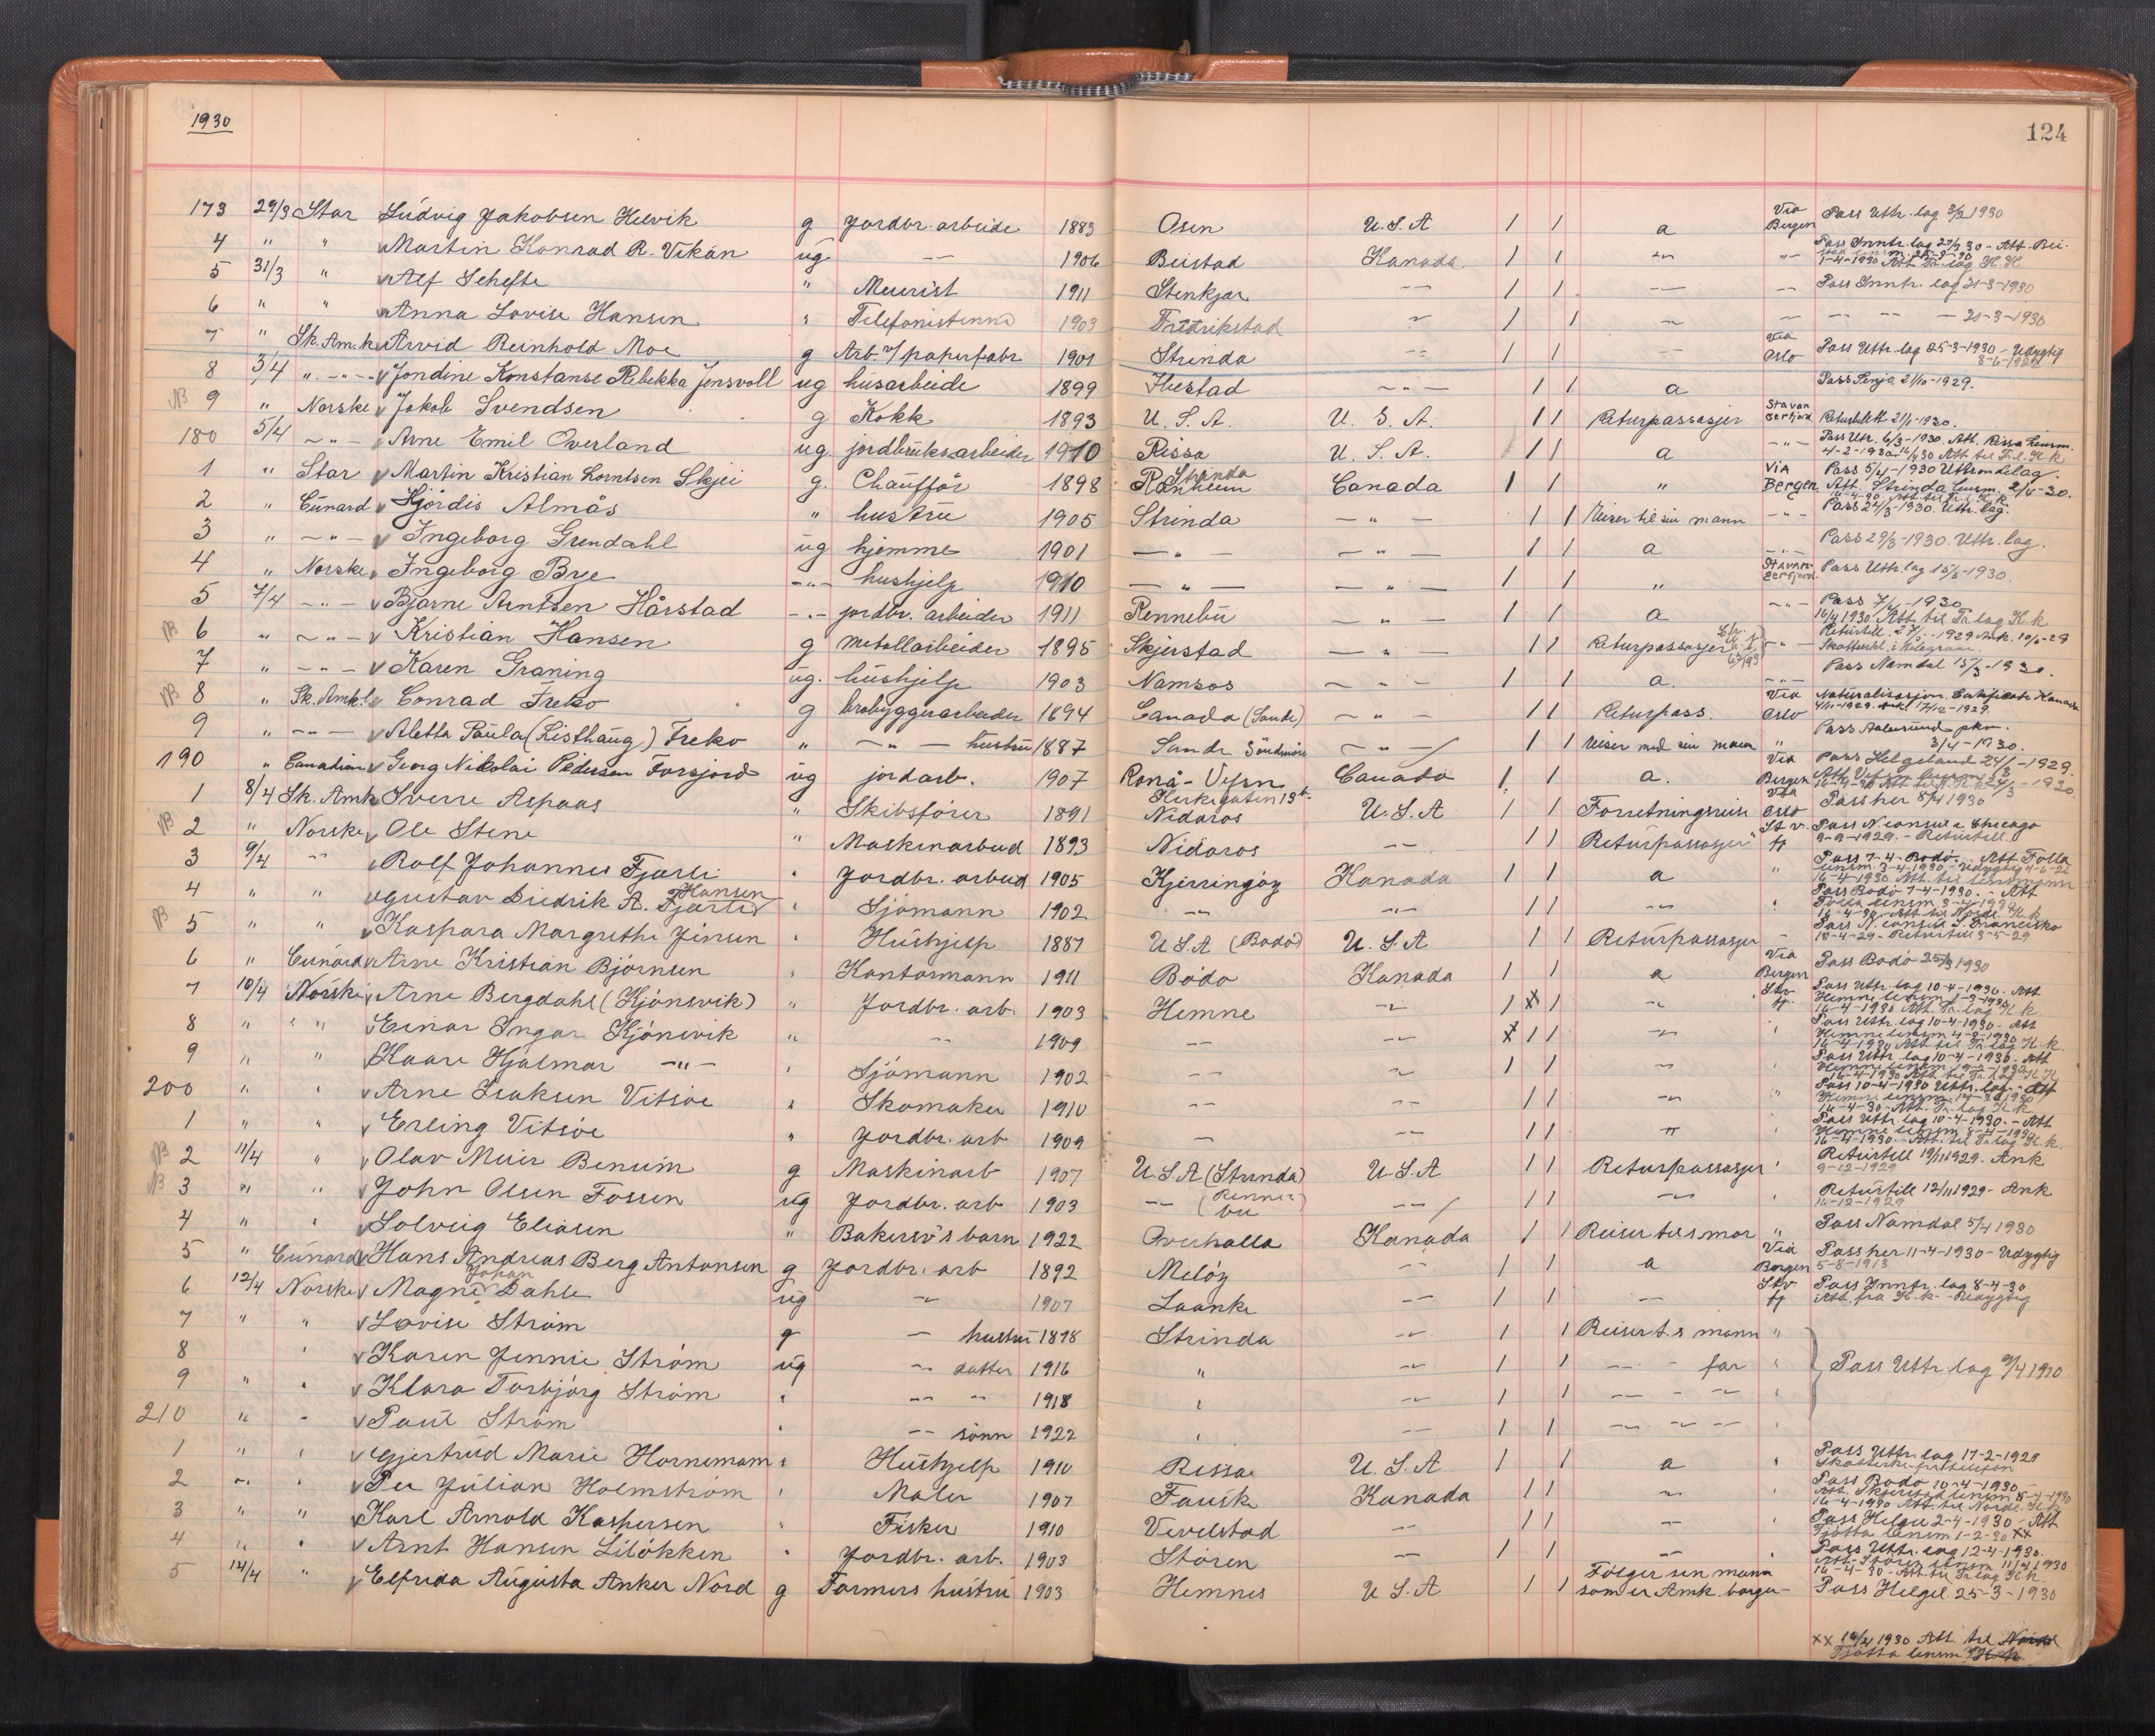 1930
124
173 29/3 Star Ludvig Jakobsen Helvik g Jordbr. arbeide 1883 Osen U.S.A 1 1 a Via Bergen Pass Uttr. lag 3/2 1930
4 " " Martin Konrad R. Vikan ug -"- 1906 Beistad Kanada 1 1 -"- -"- Pass Inntr. lag 29/3 30 - Att. Bei-
1-4-1930 Att. Tr. lag H.K.
5 31/3 " Alf Schefte " Meierist 1911 Stenkjær -"- 1 1 -"- -"- Pass Inntr. lag 21-3-1930
6 " " Anna Lovise Hansen " Telefonistinne 1903 Fredrikstad -"- 1 1 -"- -"- -"- -"- 21-3-1930
7 " Sk. Am. k Arvid Reinhold Moe g Arb. v/ papirfabr 1901 Strinda -"- 1 1 -"- Via Oslo Pass Uttr. lag 25-3-1930 - Udygtig
8-6-1921
8 3/4 " -"- Jondine Konstanse Rebekka Jensvoll ug husarbeide 1899 Ibestad -"- 1 1 a Pass Senja 21/10-1929.
NB 9 " Norske Jakob Svendsen g Kokk 1893 U.S.A. U.S.A. 1 1 Returpassasjer Stavangerfjord Returbillett 21/1-1930.
180 5/4 -"- Arne Emil Overland ug. jordbruksarbeider 1910 Rissa U.S.A. 1 1 a -"- Pass Utr. 6/3-1930. Att. Rissa lensm.
4-2-1930 16/4 30 Att til Tr.l. H.k
1 " Star Martin Kristian Lorntsen Skjei g. Chauffør 1898 Ranheim Strinda Canada 1 1 " Via Bergen Pass 5/4-1930 Uttrondelag.
Att. Strinda lensm. 2/4-30.
2 " Cunard Hjørdis Almås " hustru 1905 Strinda -"- 1 1 Reiser til sin mann -"- Pass 24/3-1930. Uttr. lag.
3 " -"- Ingeborg Grendahl ug hjemme 1901 -"- -"- 1 1 a -"- Pass 29/3-1930. Uttr. lag.
4 " Norske Ingeborg Bye -"- hushjelp 1910 -"- -"- 1 1 " Stavangerfjord Pass Uttr. lag 15/3-1930.
5 7/4 -"- Bjarne Arntsen Hårstad -"- jordbr. arbeider 1911 Rennebu -"- 1 1 a -"- Pass 7/4-1930
16/4 1930 Att til Tr lag H.k
NB 6 " -"- Kristian Hansen g metallarbeider 1895 Skjerstad -"- 1 1 Returpassasjer -"- Returbill. 27/ -1929 Ank. 10/ -29
7 " -"- Karen Graning ug. hushjelp 1903 Namsos -"- 1 1 a. -"- Pass Namdal 15/3-1930.
NB 8 " Sk. Amk. l Conrad Freko g brobyggerarbeider 1894 Canada (Sande) -"- 1 1 Returpass. Via Oslo Naturalisasjon Certificate Kanada
4/11-1929. Ank 17/12-1929.
9 " -"- Aletta Paula (Listhaug) Freko " -"- hustru 1887 Sande Søndmøre -"- 1 1 Reiser med sin mann " Pass Aalesund pkm.
3/4-1930.
190 " Canadian Georg Nikolai Pedersen Forsjord ug jordarb. 1907 Rønå - Vefsn Canada 1 1 a. Via Bergen Pass Helgeland 24/1-1929.
1 8/4 Sk. Amk Sverre Aspaas " Skibsfører 1891 Nidaros U.S.A 1 1 Forretningsreise Via Oslo Pass her 8/4 1930
NB 2 " Norske Ole Stene " Maskinarbeid 1893 Nidaros -"- 1 1 Returpassasjer St. v. fj Pass N. consul i Chicago
9-9-1929. - Returbill.
3 9/4 -"- Rolf Johannes Fjærli " Jordbr. arbeid 1905 Kjerringøy Kanada 1 1 a " Pass 7-4-Bodø. Att Folla
lensm. 3-4-1930 - Udygtig 4-6-26
16-4-1930 Att. til lensmann
4 " " Gustav Diedrik A. Fjærli Hansen " Sjømann 1902 -"- -"- 1 1 -"- " Pass Bodø 7-4-1930. - Att
Folla lensm 3-4-1930
16-4-30 - Att til Nordl. H.k
NB 5 " " Kaspara Margrethe Jensen " Hushjelp 1887 U.S.A (Bodø) U.S.A 1 1 Returpassasjer - Pass N. consul S. Francisko
18-4-29 - Returbill 3-5-29
6 " Cunard Arne Kristian Bjørnsen " Kontormann 1911 Bodø Kanada 1 1 a Via Bergen Pass Bodø 25/3 1930
7 10/4 Norske Arne Bergdahl (Kjønsvik) " Jordbr. arb. 1903 Hemne -"- 1 X 1 -"- Stv fj. Pass Uttr lag 10-4-1930. Att
16-4-1930 Att. Tr. lag H.k.
8 " " " Einar Ingar Kjønsvik " -"- 1909 -"- -"- X 1 1 -"- " Pass Uttr. lag 10-4-1930 - Att
16-4-1930 Att til Tr. lag H.k.
9 " " Kaare Hjalmar -"- " Sjømann 1902 -"- -"- 1 1 -"- " Pass Uttr lag 10-4-1930. Att
200 " " Arne Isaksen Vitsøe " Skomaker 1910 -"- -"- 1 1 -"- " Pass 10-4-1930 Uttr. lag. - Att
16-4-30 - Att. Tr. lag H.k
1 " " Erling Vitsøe " Jordbr. arb 1909 -"- -"- 1 1 " " Pass Uttr lag 10-4-1930. - Att
16-4-1930 - Att. til Tr lag H.k.
NB 2 11/4 " Olav Meier Benum g Maskinarb 1907 U.S.A (Strinda) U.S.A 1 1 Returpassasjer " Returbill 19/11 1929. Ank
9-12-1929
NB 3 " " John Olsen Fossen ug Jordbr. arb 1903 -"- (Rennebu) -"- 1 1 -"- " Returbill 12/11 1929 - Ank
16-12-1929
4 " " Solveig Eliasen " Bakersv's barn 1922 Overhalla Kanada 1 1 Reiser til s mor " Pass Namdal 5/4 1930
5 " Cunard Hans Andreas Berg Antonsen g Jordbr. arb 1892 Meløy -"- 1 1 a Via Bergen Pass her 11-4-1930 - Udygtig
5-8-1913
6 12/4 Norske Magne Johan Dahle ug -"- 1907 Laanke -"- 1 1 -"- Stv fj Pass Inntr. lag 8-4-30
Att. fra H.k. - Udygtig
7 " " Lovise Strøm g - hustru 1878 Strinda -"- 1 1 Reiser t. s mann "
8 " Karen Jennie Strøm ug -"- datter 1916 " -"- 1 1 -"- - far " Pass Uttr. lag 9/4 1930
9 " " Klara Torbjørg Strøm " -"- -"- 1918 " -"- 1 1 -"- -"- "
210 " " Paul Strøm " -"- sønn 1922 " -"- 1 1 -"- -"- "
1 " " Gjertrud Marie Hornemann " Hushjelp 1910 Rissa U.S.A 1 1 a " Pass Uttr. lag 17-2-1929
2 " " Per Julian Holmstrøm " Maler 1907 Fauske Kanada 1 1 -"- Pass Bodø 10-4-1930 -
Att Skjerstad lensm 8-4-1930
16-4-1930 Att. til Nordl. H.k
3 " " Karl Arnold Kaspersen " Fisker 1910 Vevelstad -"- 1 1 -"- " Pass Helgel 2-4-1930 - Att
Tjøtta lensm 1-2-30 XX
4 " " Arnt Hansen Liløkken " Jordbr. arb. 1903 Støren -"- 1 1 -"- " Pass Uttr. lag 12-4-1930.
Att. Støren lensm 11/4 1930
16-4-30 - Att til Tr lag H.k.
5 14/4 " Elfrida Augusta Anker Nord g Farmers hustru 1903 Hemnes U.S.A 1 1 Følger sin mann
som er Amk. borger - Pass Helgel. 25-3-1930
XX 16/4 1930 Att. til
Tjøtta lensm